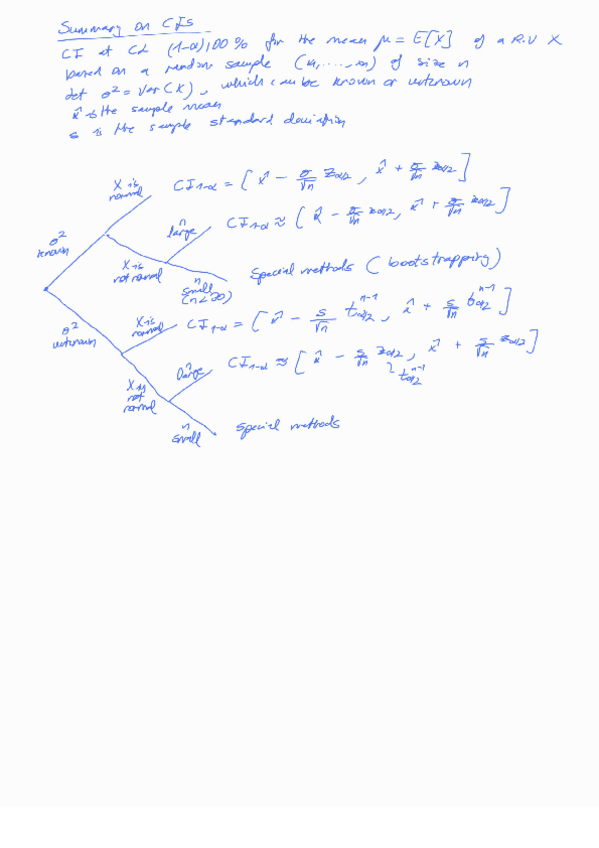 Summary on CIs
CI at CL (1-α)100% for the mean μ = E[X] of a R.V X
based on a random sample (x₁, ..., xₙ) of size n
let σ² = Var(X), which can be known or unknown
x̄ is the sample mean
s is the sample standard deviation
σ² known
X is normal
CI₁₋α = [x̄ - σ/√n z_α/2, x̄ + σ/√n z_α/2]
X is not normal
n large
CI₁₋α ≈ [x̄ - σ/√n z_α/2, x̄ + σ/√n z_α/2]
n small (n<30)
special methods (bootstrapping)
σ² unknown
X is normal
CI₁₋α = [x̄ - s/√n t^n-1_α/2, x̄ + s/√n t^n-1_α/2]
X is not normal
n large
CI₁₋α ≈ [x̄ - s/√n z_α/2, x̄ + s/√n z_α/2]
t^n-1_α/2
n small
special methods